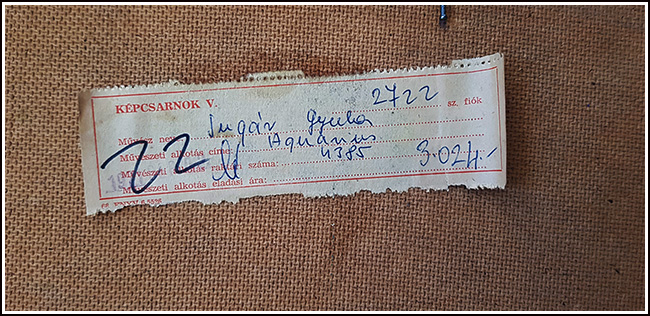 KÉPCSARNOK V. 2722 sz. fiók
Művész neve: Sugár Gyula
Művészeti alkotás címe: Aquárius
Művészeti alkotás raktári száma: 4385
Művészeti alkotás eladási ára: 3.024.-
22